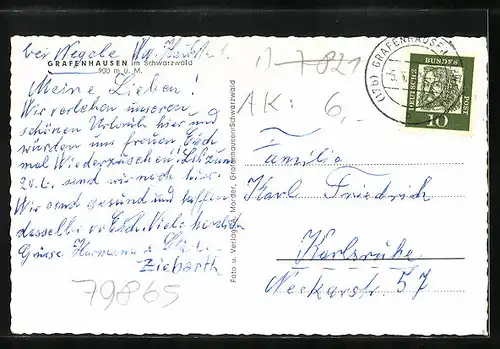 bei Wegele
GRAFENHAUSEN im Schwarzwald
900 m ü. M.
Meine Lieben!
Wir verleben unseren
schönen Urlaub hier und
würden uns freuen, Euch
mal Wiederzusehen! Bis zum
20. sind wir noch hier.
Wir sind gesund und hoffen
dasselbe von Euch. Viele herzliche
Grüsse Hermann u.
Ziebarth
79865
Foto u. Verlag: A. Morder, Grafenhausen/Schwarzwald
7821
AK: 6,-
(17b) GRAFENHAUSEN
DEUTSCHE BUNDESPOST
10
Familie
Karl Friedrich
Karlsruhe
Neckarstr. 57